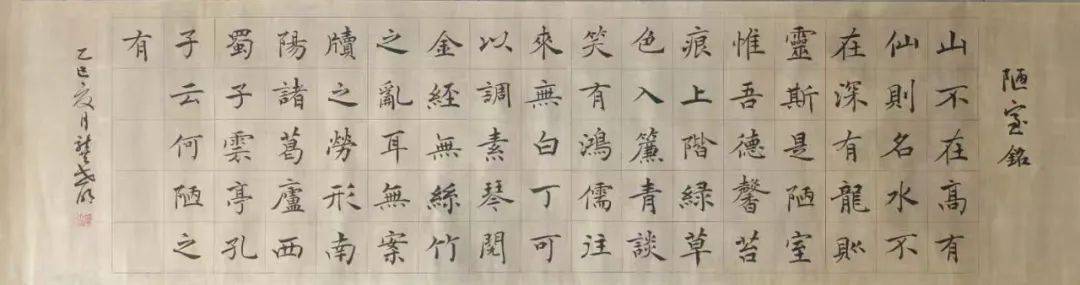 陋室銘
山不在高有
仙則名水不
在深有龍則
靈斯是陋室
惟吾德馨苔
痕上階綠草
色入簾青談
笑有鴻儒往
來無白丁可
以調素琴閱
金經無絲竹
之亂耳無案
牘之勞形南
陽諸葛廬西
蜀子雲亭孔
子云何陋之
有
乙巳夏月